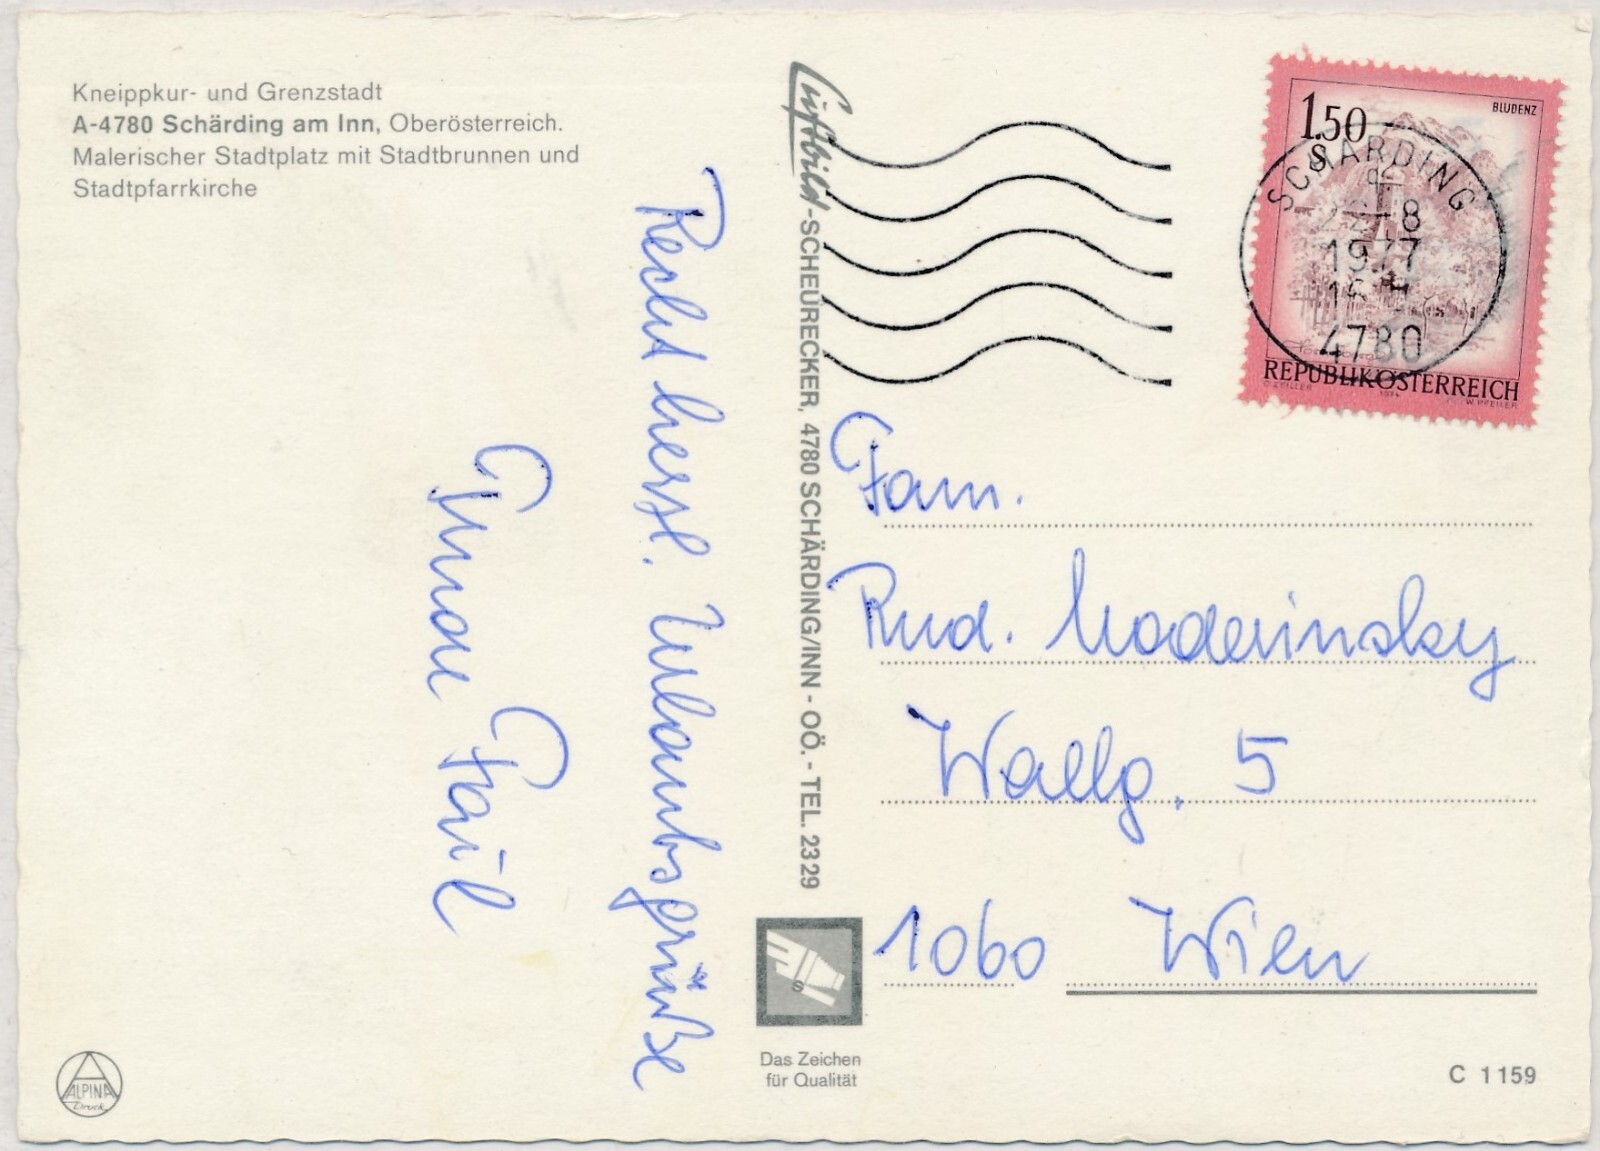 Kneippkur- und Grenzstadt
A-4780 Schärding am Inn, Oberösterreich.
Malerischer Stadtplatz mit Stadtbrunnen und
Stadtpfarrkirche
Recht herzl. Urlaubsgrüße
Luftbild-SCHEURECKER, 4780 SCHÄRDING/INN - OÖ. - TEL. 23 29
1.50
S
BLUDENZ
REPUBLIK ÖSTERREICH
O. ZEILLER 1974 W. PFEILER
SCHÄRDING
-8
1977
4780
Fam.
Rud.
Wallg. 5
1060 Wien
Das Zeichen
für Qualität
ALPINA
Druck
C 1159